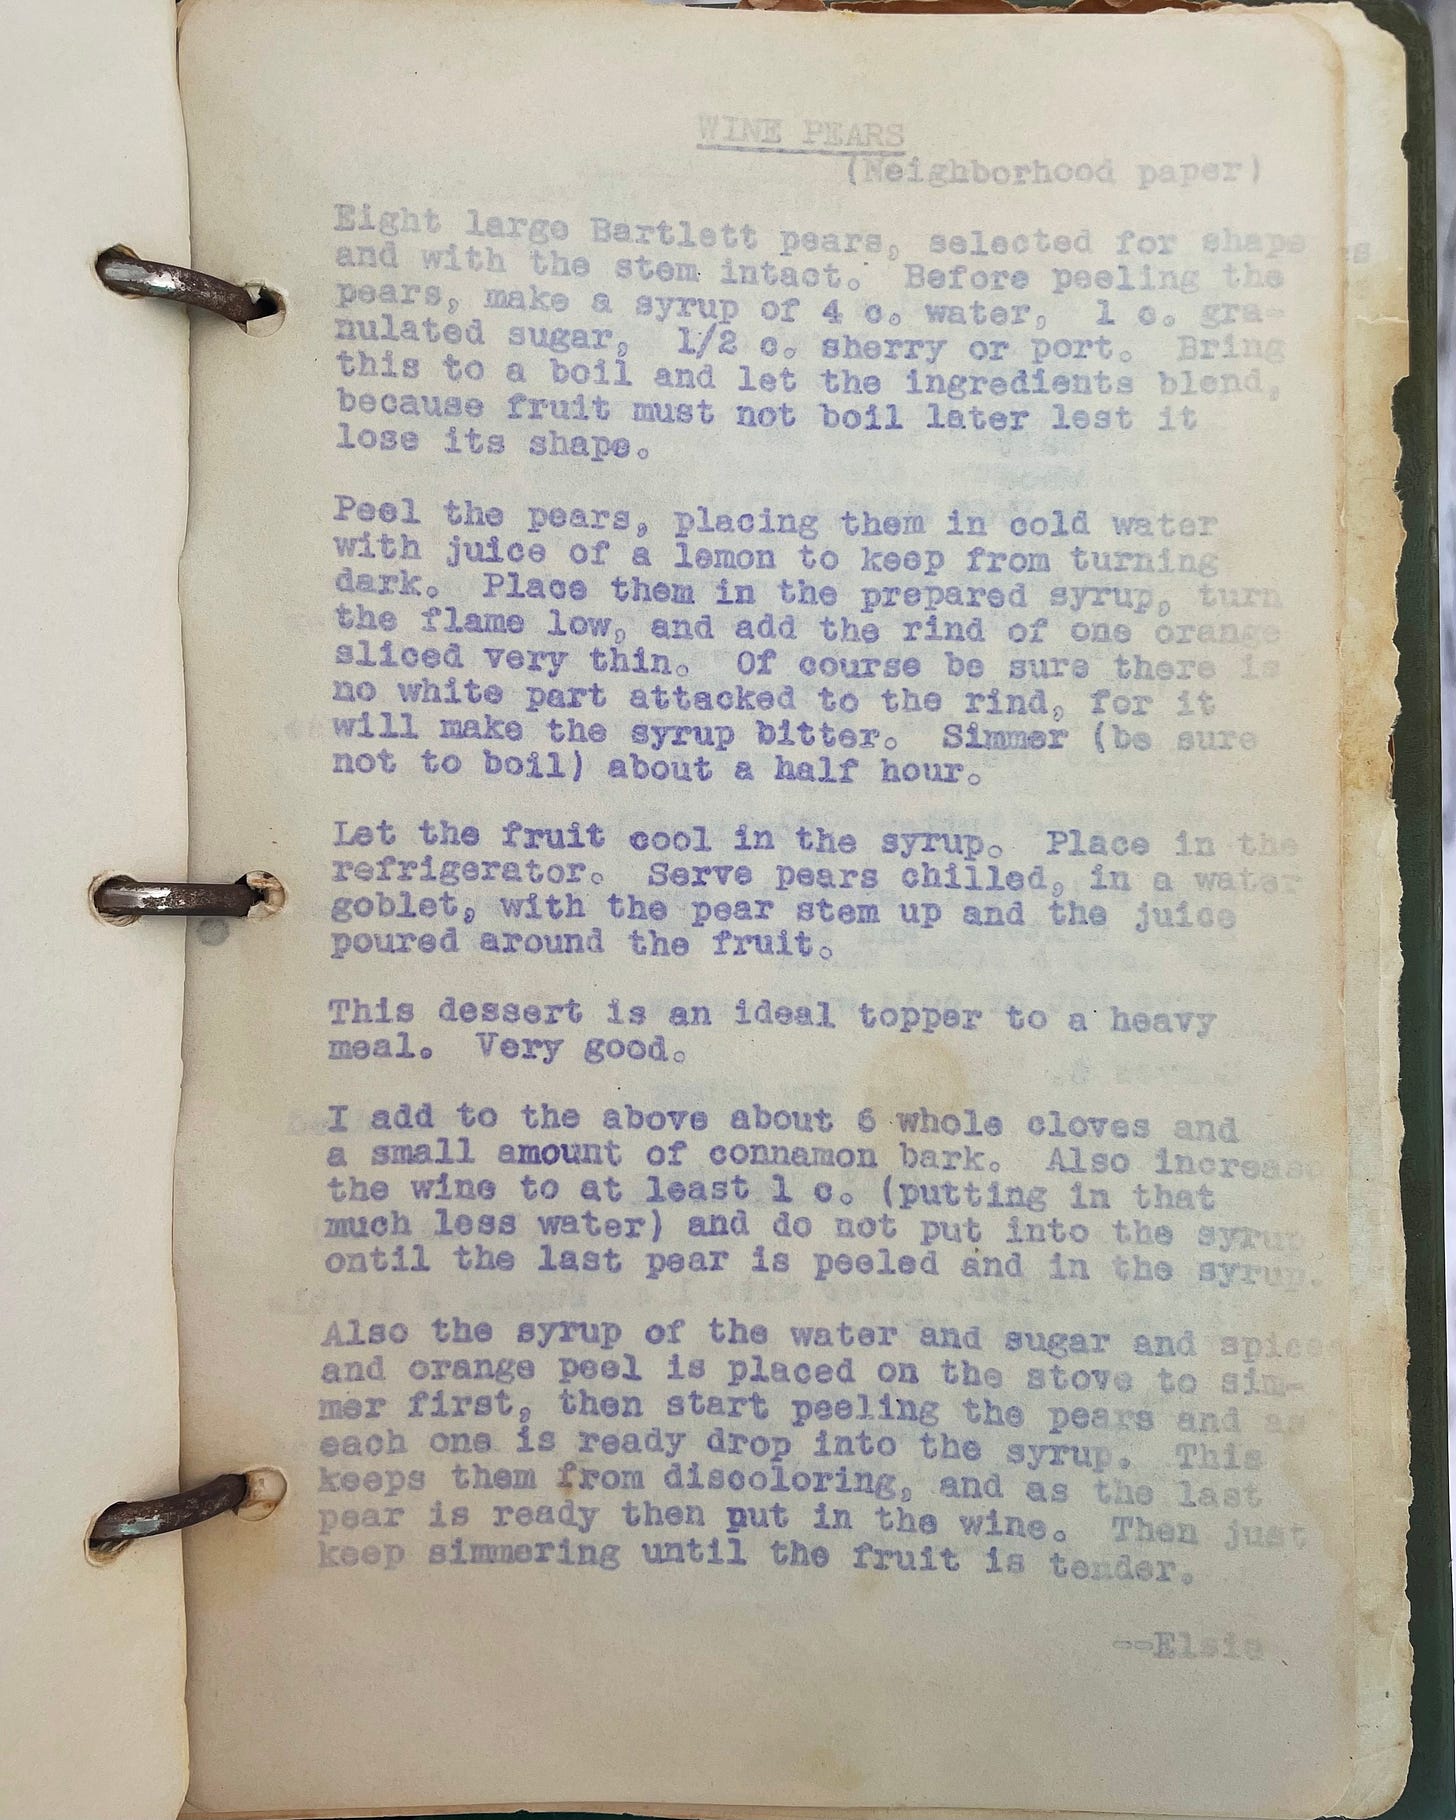 WINE PEARS
(Neighborhood paper)
Eight large Bartlett pears, selected for shape
and with the stem intact. Before peeling the
pears, make a syrup of 4 c. water, 1 c. gra-
nulated sugar, 1/2 c. sherry or port. Bring
this to a boil and let the ingredients blend,
because fruit must not boil later lest it
lose its shape.
Peel the pears, placing them in cold water
with juice of a lemon to keep from turning
dark. Place them in the prepared syrup, turn
the flame low, and add the rind of one orange
sliced very thin. Of course be sure there is
no white part attacked to the rind, for it
will make the syrup bitter. Simmer (be sure
not to boil) about a half hour.
Let the fruit cool in the syrup. Place in the
refrigerator. Serve pears chilled, in a water
goblet, with the pear stem up and the juice
poured around the fruit.
This dessert is an ideal topper to a heavy
meal. Very good.
I add to the above about 6 whole cloves and
a small amount of connamon bark. Also increase
the wine to at least 1 c. (putting in that
much less water) and do not put into the syrup
ontil the last pear is peeled and in the syrup.
Also the syrup of the water and sugar and spices
and orange peel is placed on the stove to sim-
mer first, then start peeling the pears and as
each one is ready drop into the syrup. This
keeps them from discoloring, and as the last
pear is ready then put in the wine. Then just
keep simmering until the fruit is tender.
--Elsie